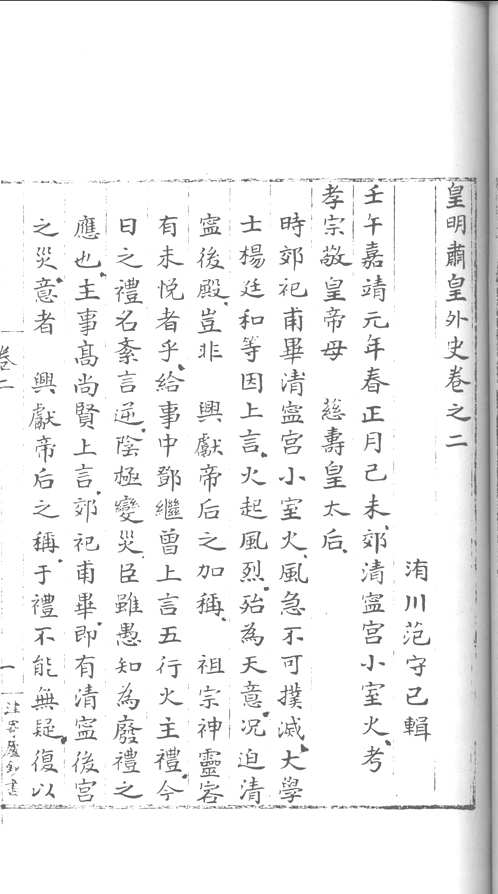 皇明肅皇外史卷之二
洧川范守己輯
壬午嘉靖元年春正月己未郊清寧宮小室火考
孝宗敬皇帝母 慈壽皇太后
時郊祀甫畢清寧宮小室火風急不可撲滅大學
士楊廷和等因上言火起風烈殆為天意况迫清
寧後殿豈非 興獻帝后之加稱 祖宗神靈容
有未悅者乎給事中鄧繼曾上言五行火主禮今
日之禮名紊言逆陰極變災臣雖愚知為廢禮之
應也主事高尚賢上言郊祀甫畢即有清寧後宮
之災意者 興獻帝后之稱于禮不能無疑復以
卷二
一